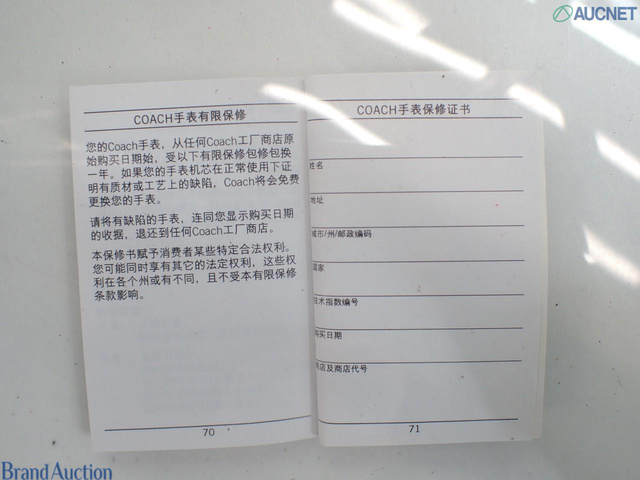 AUCNET
COACH手表有限保修
您的Coach手表，从任何Coach工厂商店原
始购买日期始，受以下有限保修包修包换
一年。如果您的手表机芯在正常使用下证
明有质材或工艺上的缺陷，Coach将会免费
更换您的手表。
请将有缺陷的手表，连同您显示购买日期
的收据，退还到任何Coach工厂商店。
本保修书赋予消费者某些特定合法权利。
您可能同时享有其它的法定权利，这些权
利在各个州或有不同，且不受本有限保修
条款影响。
70
COACH手表保修证书
姓名
地址
城市/州/邮政编码
国家
技术指数编号
购买日期
商店及商店代号
71
Brand Auction